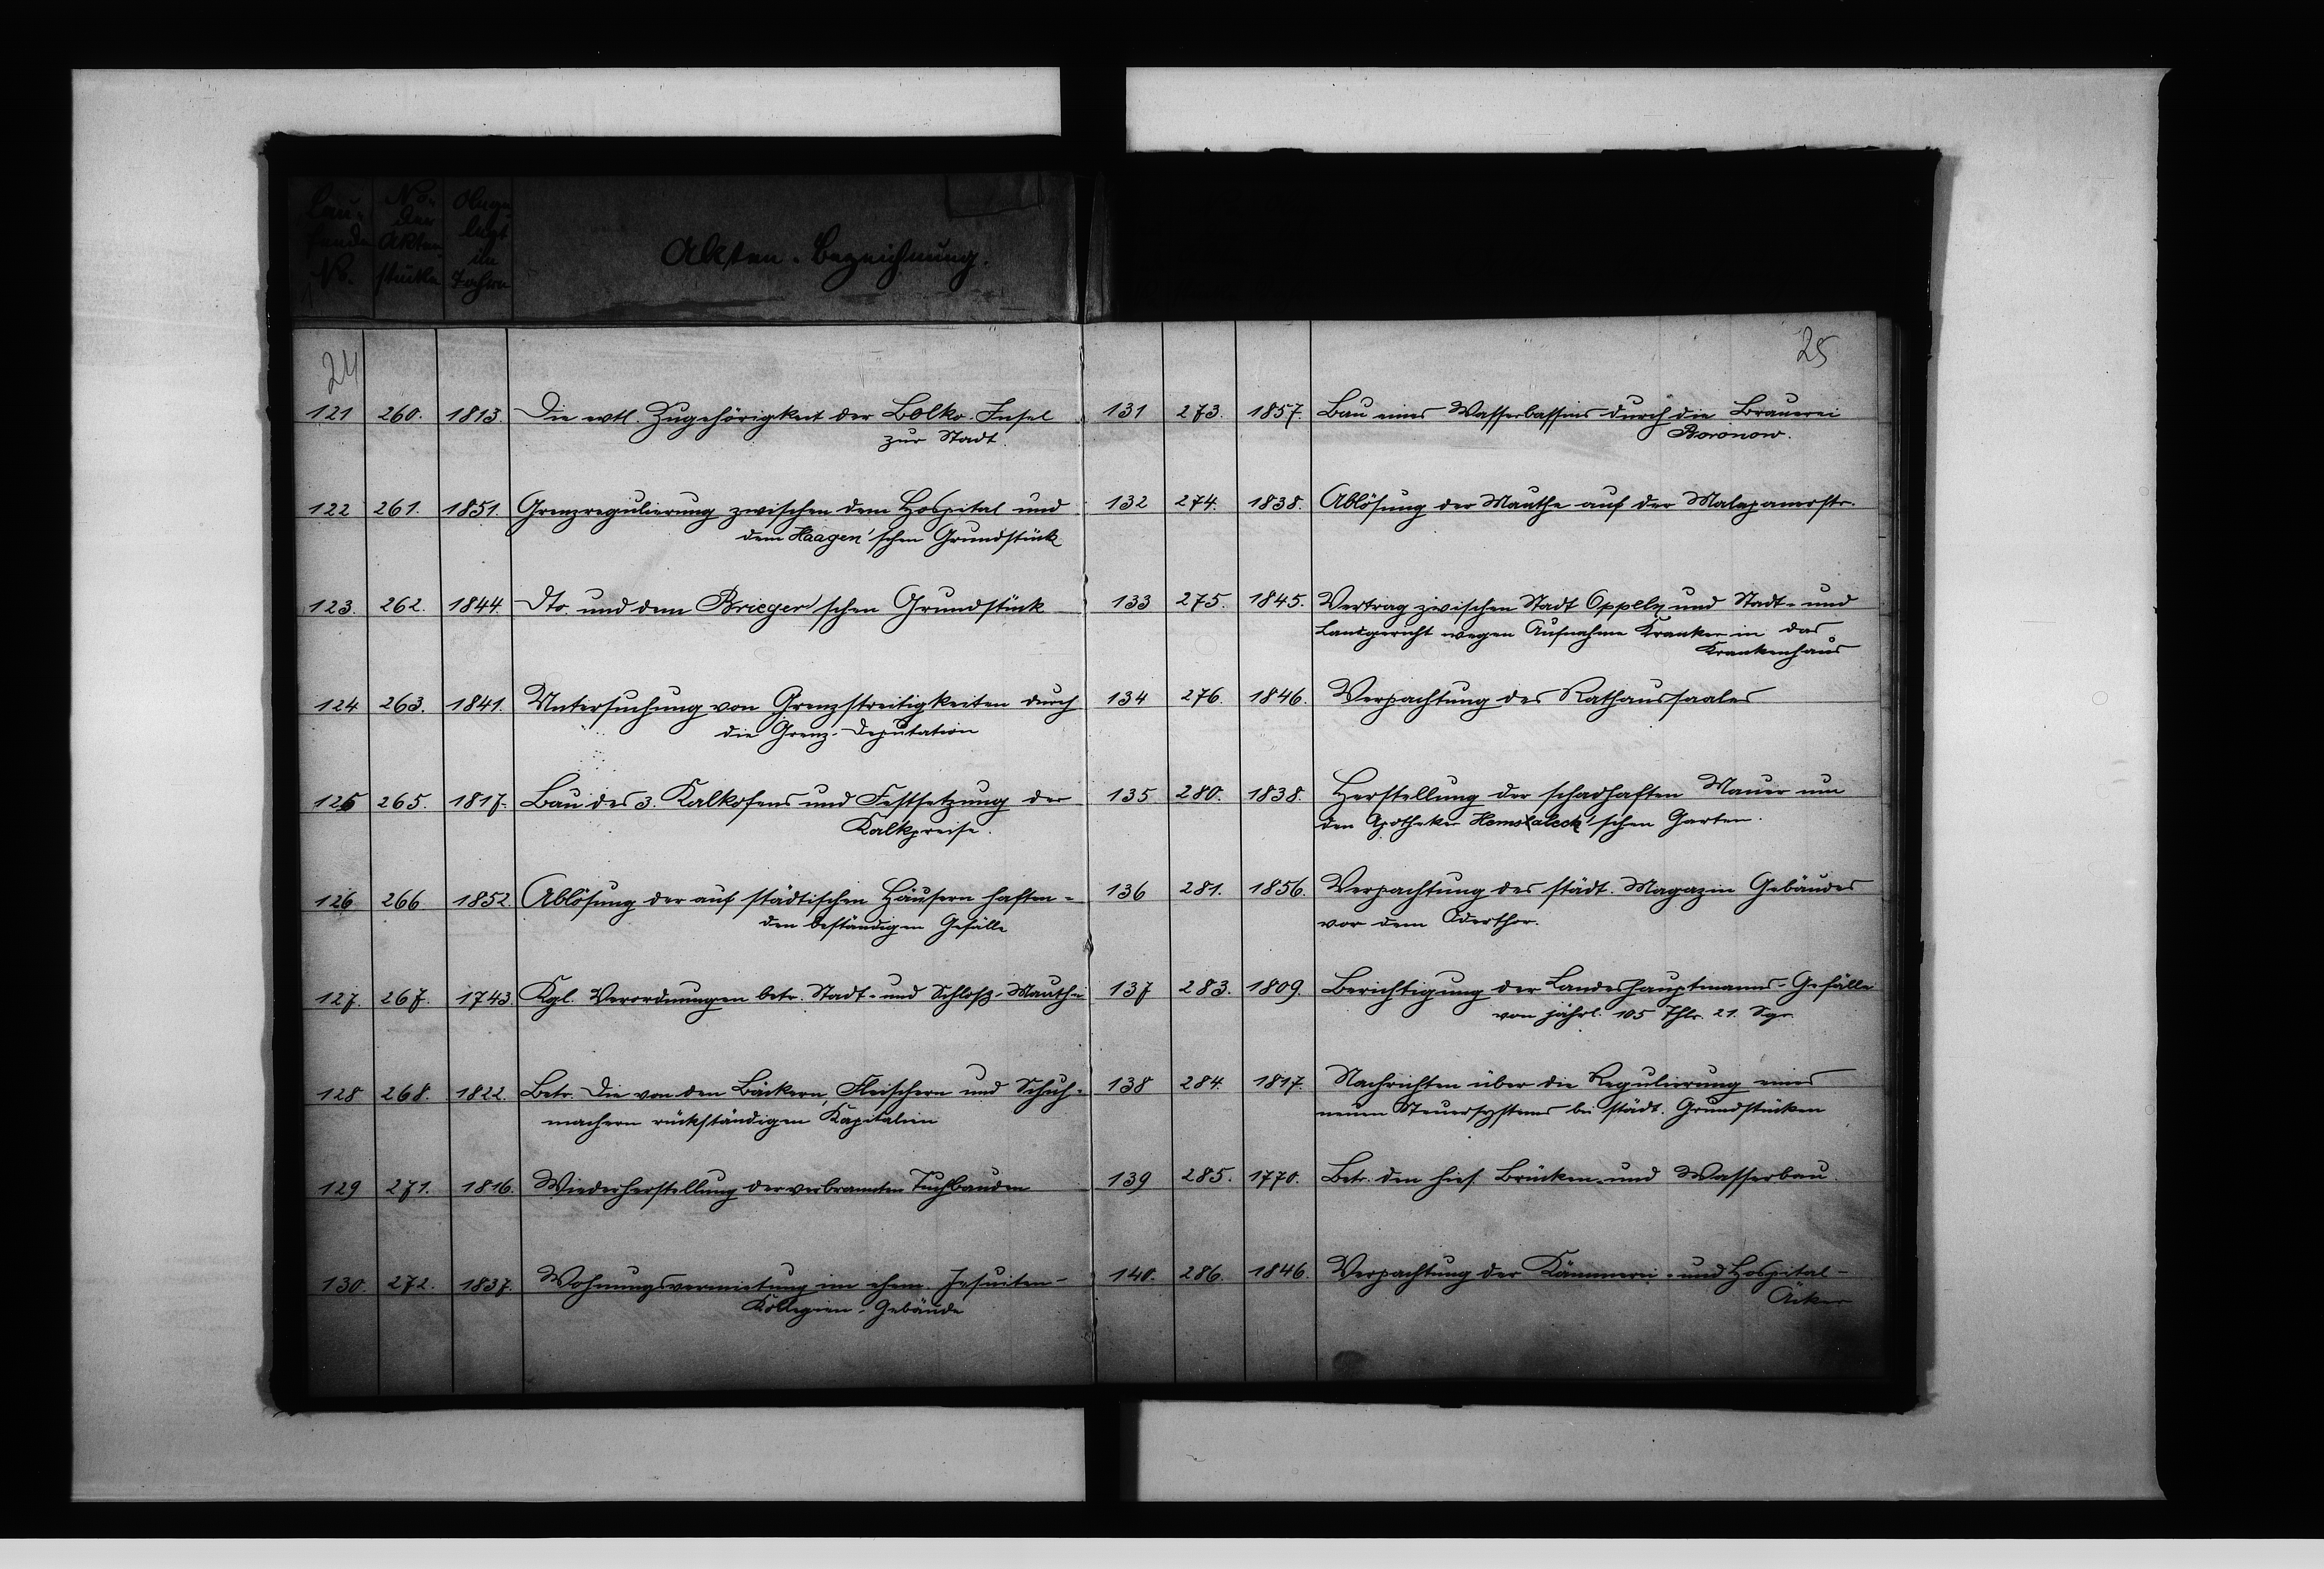 Lau-
fende
No.
No.
der
Akten
stücke
Ange
legt
im
Jahre
Akten-Bezeichnung.
24
121 260. 1813. Die evtl. Zugehörigkeit der Bolko-Insel
zur Stadt.
122 261. 1851. Grenzregulierung zwischen dem Hospital und
dem Haagen'schen Grundstück
123. 262. 1844. Dto. und dem Brieger'schen Grundstück
124 263. 1841. Untersuchung von Grenzstreitigkeiten durch
die Grenz-Deputation
125 265. 1817. Bau des 3. Kalkofens und Festsetzung der
Kalkpreise.
126 266. 1852. Ablösung der auf städtischen Häusern haften-
den beständigen Gefälle
127. 267. 1743. Kgl. Verordnungen betr. Stadt- und Schloß-Mauthe
128 268. 1822. Betr. die von den Bäckern, Fleischern und Schuh-
machern rückständigen Kapitalien
129 271. 1816. Wiederherstellung der verbrannten Tuchbauden
130. 272. 1837. Wohnungsvermietung im ehem. Jesuiten-
Kollegien-Gebäude
25
131 273. 1857. Bau eines Wasserbassins durch die Brauerei
Boronow.
132 274. 1838. Ablösung der Mauthe auf der Malapanerstr.
133 275. 1845. Vertrag zwischen Stadt Oppeln und Stadt- und
Landgericht wegen Aufnahme Kranker in das
Krankenhaus
134 276. 1846. Verpachtung des Rathaussaales
135 280. 1838. Herstellung der schadhaften Mauer um
den Apotheker schen Garten.
136 281. 1856. Verpachtung des städt. Magazin Gebäudes
vor dem Oderthor.
137 283. 1809. Berichtigung der Landeshauptmanns-Gefälle
von jährl. 105 Thlr. 21. Sgr.
138 284. 1817. Nachrichten über die Regulierung eines
neuen Steuersystems bei städt. Grundstücken
139 285. 1770. Betr. den hies. Brücken- und Wasserbau.
140. 286. 1846. Verpachtung der Kämmerei- und Hospital-
Äcker